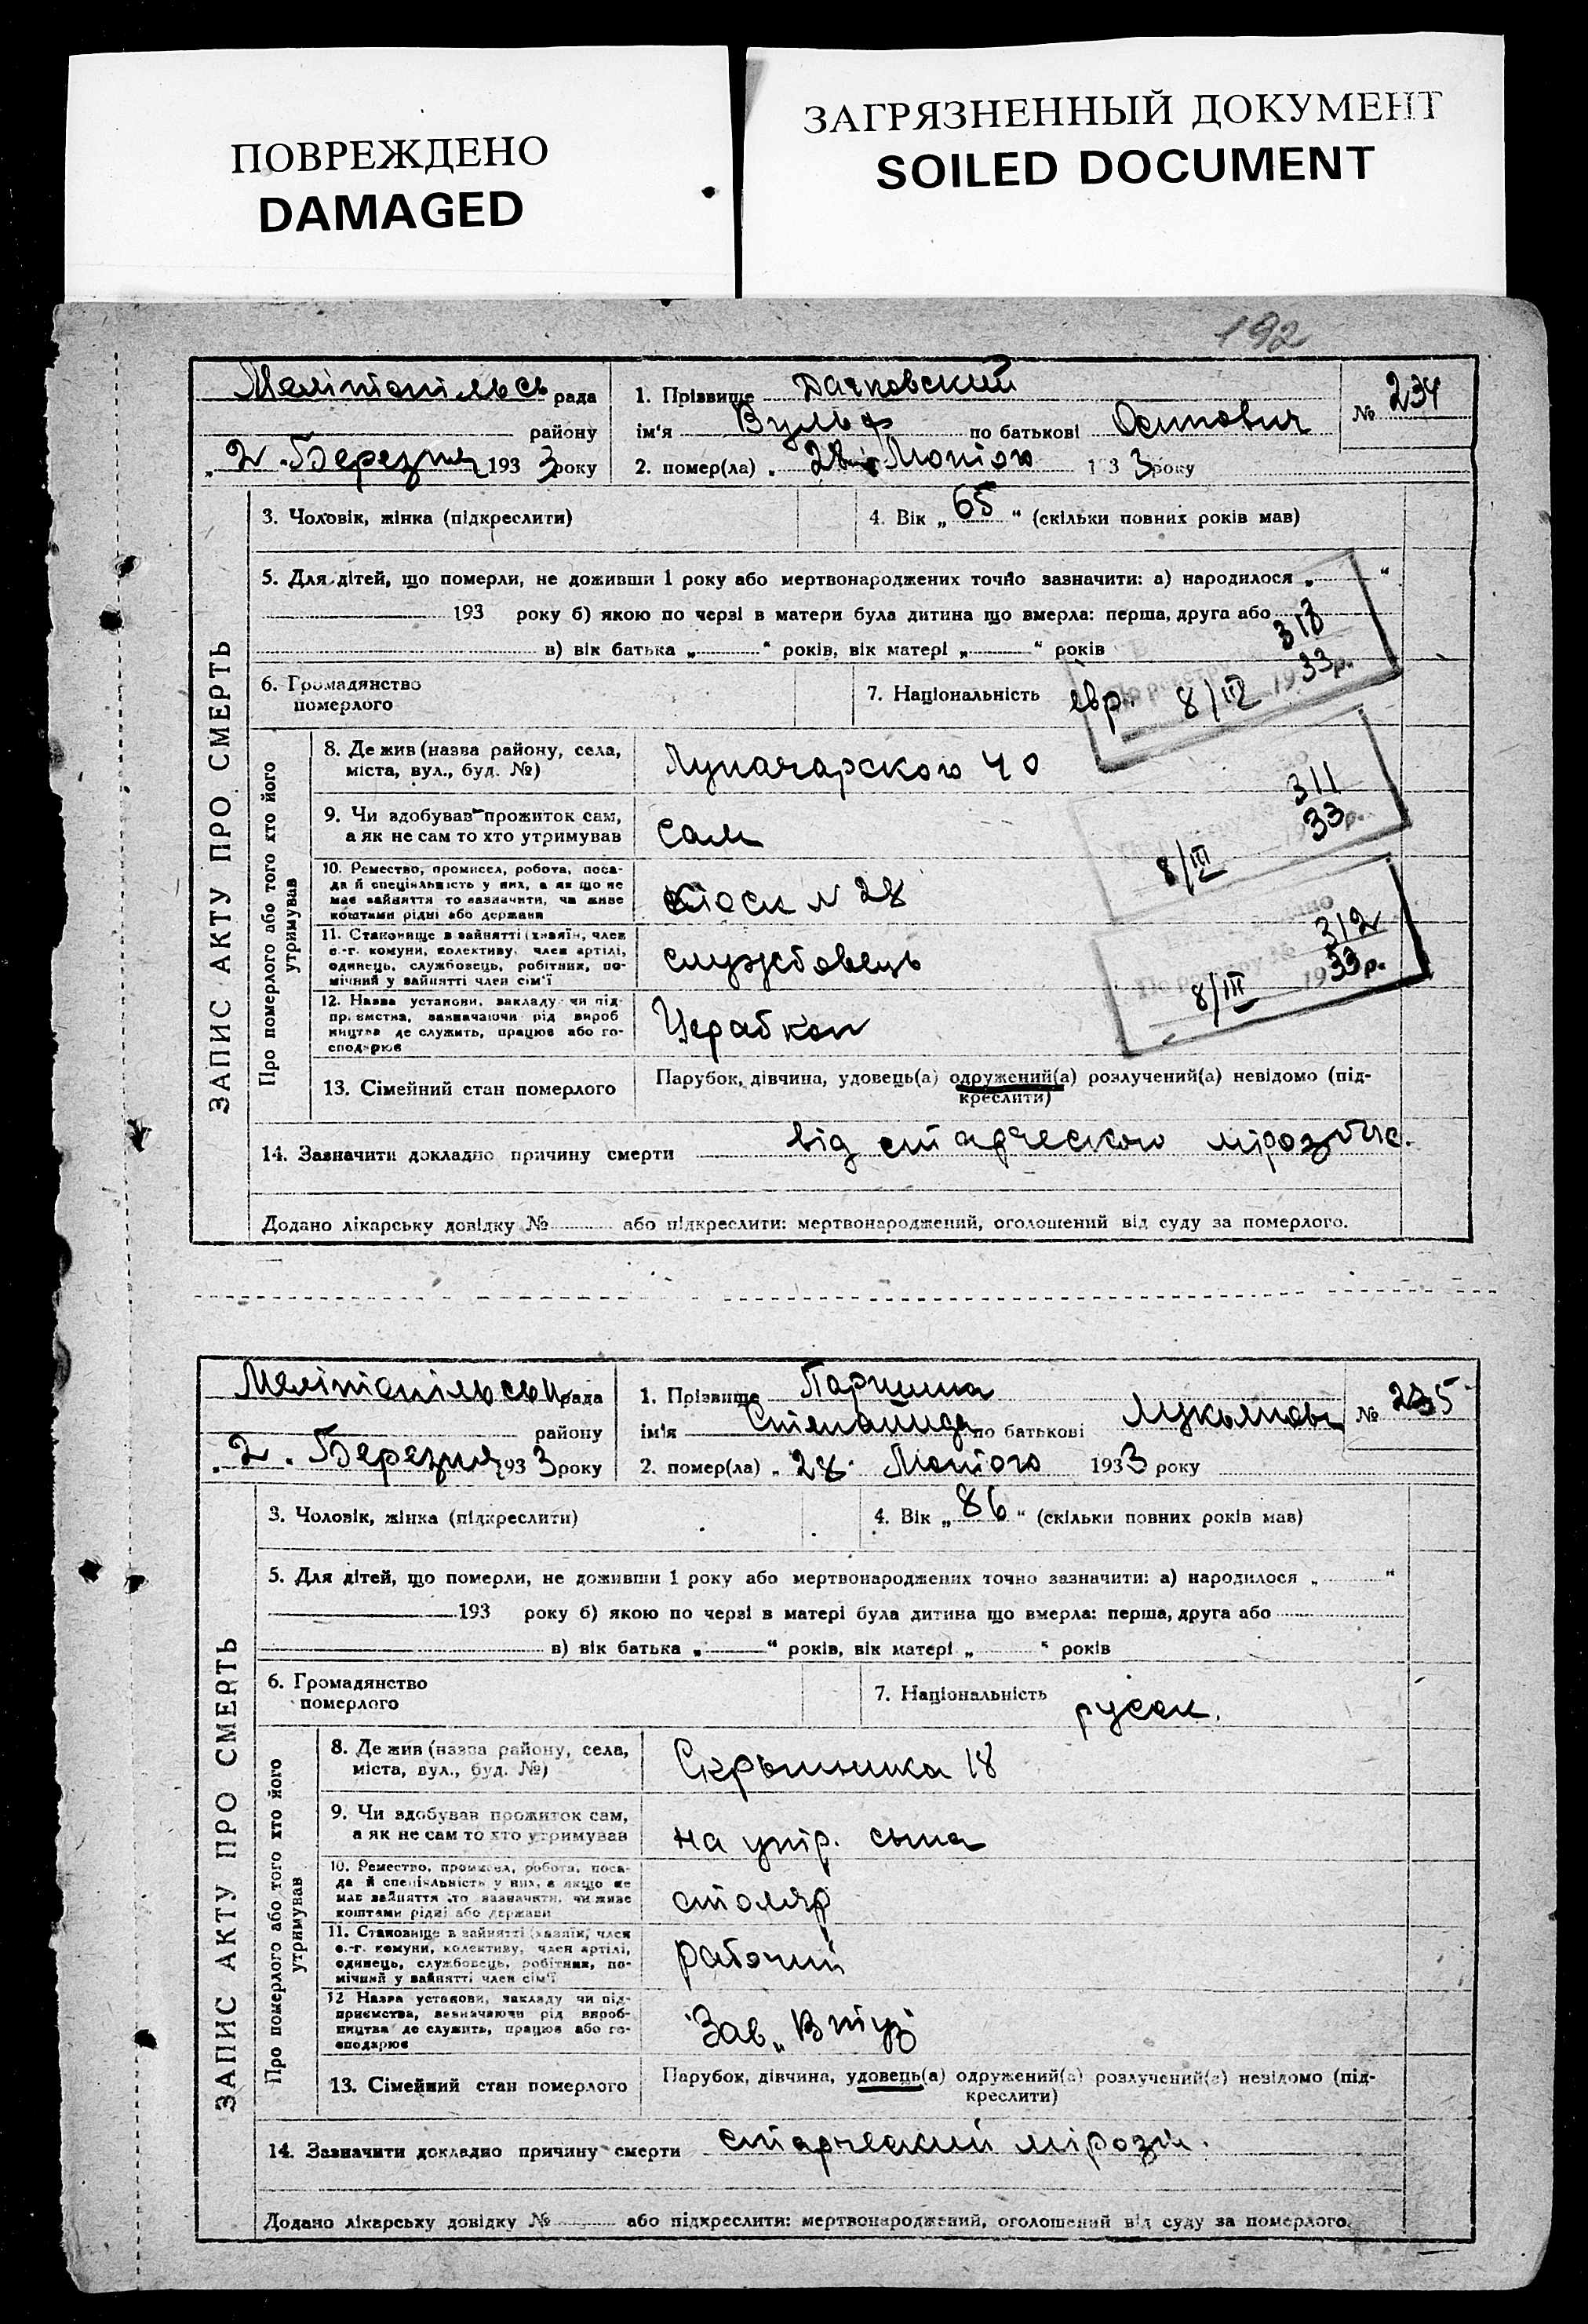 ПОВРЕЖДЕНО
DAMAGED
ЗАГРЯЗНЕННЫЙ ДОКУМЕНТ
SOILED DOCUMENT
192
ЗАПИС АКТУ ПРО СМЕРТЬ
Меліпіопільсь рада
району
„ 2 „ Березня 193 3 року
1. Прізвище Дачковский
ім'я Вульф по батькові Осипович
№ 234
2. помер(ла) „ 28 „ Лютого 193 3 року
3. Чоловік, жінка (підкреслити)
4. Вік „ 65 “ (скільки повних років мав)
5. Для дітей, що померли, не доживши 1 року або мертвонароджених точно зазначити: а) народилося „ “
193 року б) якою по черзі в матери була дитина що вмерла: перша, друга або
в) вік батька „ “ років, вік матері „ “ років
318
6. Громадянство
померлого
7. Національність євр.
8/III 1933р.
Про померлого або того хто його
утримував
8. Де жив (назва району, села,
міста, вул., буд. №)
Луначарского 40
311
9. Чи здобував прожиток сам,
а як не сам то хто утримував
сам
8/III 33р.
10. Ремество, промисел, робота, поса-
да й спеціяльність у них, а як що не
має зайняття то зазначити, чи живе
коштами рідні або держави
кіоск № 28
11. Становище в зайнятті (хазяїн, член
с.-г. комуни, колективу, член артілі,
одинець, службовець, робітник, по-
мічний у зайнятті член сім'ї
службовець
312
8/III 1933р.
12. Назва установи, закладу чи під-
приємства, зазначаючи рід вироб
ництва де служить, працює або го-
сподарює
Церабкоп
13. Сімейний стан померлого
Парубок, дівчина, удовець(а) одружений(а) розлучений(а) невідомо (під-
креслити)
14. Зазначити докладно причину смерти від старческого
Додано лікарську довідку № або підкреслити: мертвонароджений, оголошений від суду за померлого.
ЗАПИС АКТУ ПРО СМЕРТЬ
рада
району
„ 2 „ Березня 193 3 року
1. Прізвище Паршина
ім'я Степанида по батькові Лукьяновн
№ 235
2. помер(ла) „ 28 „ Лютого 193 3 року
3. Чоловік, жінка (підкреслити)
4. Вік „ 86 “ (скільки повних років мав)
5. Для дітей, що померли, не доживши 1 року або мертвонароджених точно зазначити: а) народилося „ “
193 року б) якою по черзі в матері була дитина що вмерла: перша, друга або
в) вік батька „ “ років, вік матері „ “ років
6. Громадянство
померлого
7. Національність русск.
Про померлого або того хто його
утримував
8. Де жив (назва району, села,
міста, вул., буд. №)
Скрыпника 18
9. Чи здобував прожиток сам,
а як не сам то хто утримував
на утр. сына
10. Ремество, промисел, робота, поса-
да й спеціяльність у них, а якщо не
має зайняття то зазначити, чи живе
коштами рідні або держави
столяр
11. Становище в зайнятті (хазяїн, член
с.-г. комуни, колективу, член артілі,
одинець, службовець, робітник, по-
мічний у зайнятті член сім'ї
рабочий
12 Назва установи, закладу чи під-
приємства, зазначаючи рід вироб-
ництва де служить, працює або го-
сподарює
Зав „Втуз"
13. Сімейний стан померлого
Парубок, дівчина, удовець(а) одружений(а) розлучений(а) невідомо (під-
креслити)
14. Зазначити докладно причину смерти старческий
Додано лікарську довідку № або підкреслити: мертвонароджений, оголошений від суду за померлого.